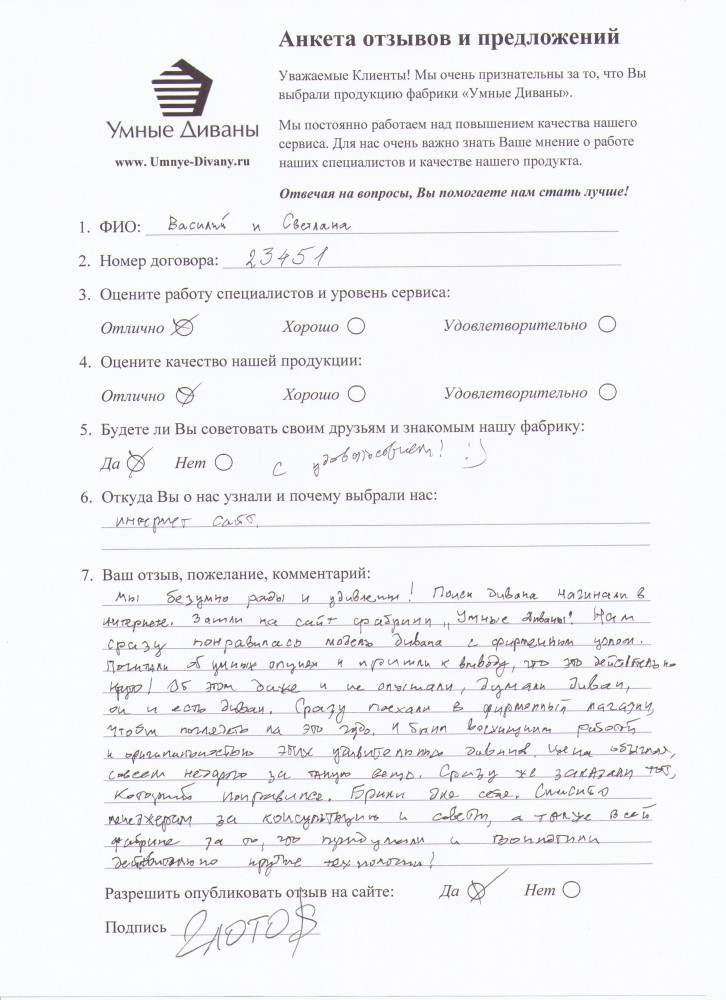 Анкета отзывов и предложений
Уважаемые Клиенты! Мы очень признательны за то, что Вы
выбрали продукцию фабрики «Умные Диваны».
Умные Диваны
www. Umnye-Divany.ru
Мы постоянно работаем над повышением качества нашего
сервиса. Для нас очень важно знать Ваше мнение о работе
наших специалистов и качестве нашего продукта.
Отвечая на вопросы, Вы помогаете нам стать лучше!
1. ФИО: Василий и Светлана
2. Номер договора: 23451
3. Оцените работу специалистов и уровень сервиса:
Отлично Хорошо Удовлетворительно
4. Оцените качество нашей продукции:
Отлично Хорошо Удовлетворительно
5. Будете ли Вы советовать своим друзьям и знакомым нашу фабрику:
Да Нет с удовольствием! :)
6. Откуда Вы о нас узнали и почему выбрали нас:
интернет сайт.
7. Ваш отзыв, пожелание, комментарий:
Мы безумно рады и удивлены! Поиск дивана начинали в
интернете. Зашли на сайт фабрики „Умные диваны". Нам
сразу понравилась модель дивана с фирменным углом.
Почитали об умных опциях и пришли к выводу, что это действительно
круто! Об этом даже и не слыхали, думали диван,
он и есть диван. Сразу поехали в фирменный магазин,
чтобы поглядеть на это чудо. И были восхищены работой
и оригинальностью этих удивительных диванов. Цена обычная,
совсем недорого за такую вещь. Сразу же заказали тот,
который понравился. Брали для себя. Спасибо
менеджерам за консультацию и советы, а также всей
фабрике за то, что придумали и воплотили
действительно крутые технологии!
Разрешить опубликовать отзыв на сайте: Да Нет
Подпись